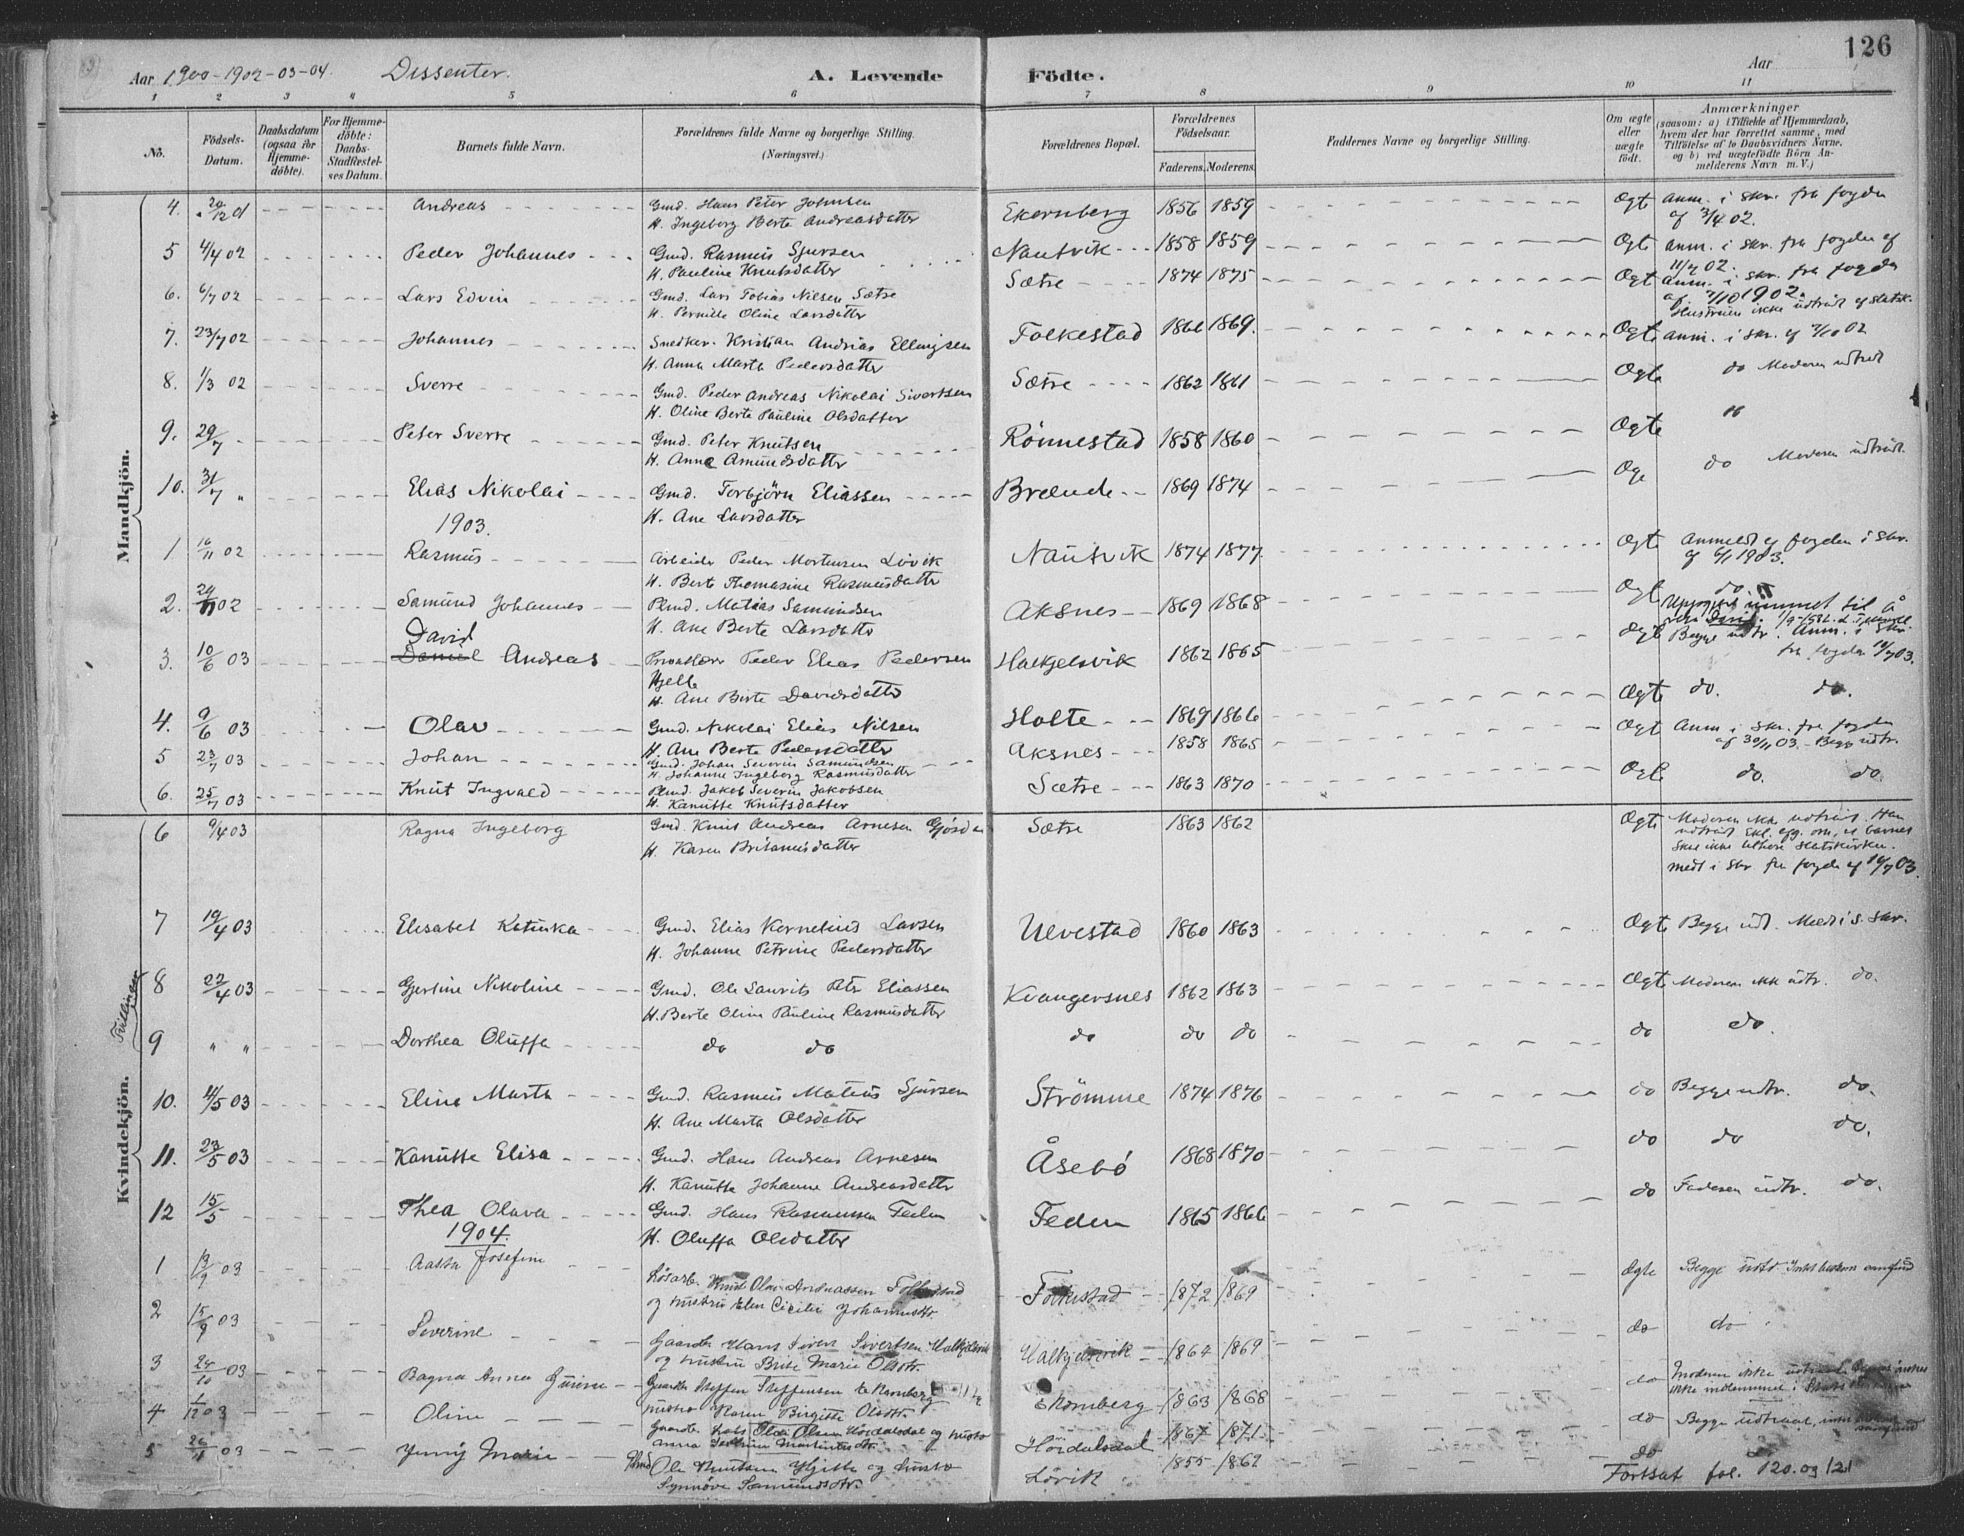 126
Aar 1900-1902-03-04. Dissenter. A. Levende Födte. Aar
1 2 3 4 5 6 7 8 9 10 11
No. Födsels-Datum. Daabsdatum (ogsaa för Hjemmedöbte). For Hjemmedöbte: Daabs-Stadfæstelses Datum. Barnets fulde Navn. Forældrenes fulde Navne og borgerlige Stilling. (Næringsvei.) Forældrenes Bopæl. Forældrenes Födselsaar. Faderens. Moderens. Faddernes Navne og borgerlige Stilling. Om ægte eller uægte födt. Anmærkninger (saasom: a) i Tilfælde af Hjemmedaab, hvem der har forrettet samme, med Tilföielse af to Daabsvidners Navne, og b) ved uægtefödte Börn Anmelderens Navn m. V.)
Mandkjön.
4. Andreas Gmd. Hans Peter Johnsen Ekornberg 1856 1859 Ægte anm. i skr. fra fogden
H. Ingeborg Berte Andreasdatter af 3/4 02.
5 4/4 02 Peder Johannes Gmd. Rasmus Sjursen Nautvik 1858 1859 Ægte anm. i skr. fra fogden af
H. Pauline Knutsdatter 11/7 02.
6. 6/7 02 Lars Edvin Gmd. Lars Tobias Nilsen Sætre Sætre 1874 1875 Ægt anm. i skr. fra fogden
H. Pernille Oline Larsdatter af 7/10 1902. Hustruen ikke udtrådt af statsk.
7. 23/7 02 Johannes Snedker. Kristian Andrias Ellingsen Folkestad 1866 1869. Ægte anm. i skr. af 7/10 02
H. Anna Marta Pedersdatter
8. 1/3 02 Sverre Gmd. Peder Andreas Nikolai Sivertsen Sætre 1862 1861 Ægte do Moderen udtrådt
H. Oline Berte Pauline Olsdatter
9. 29/7 Peter Sverre Gmd. Peter Knutsen Rönnestad 1858 1860 Ægte "
H. Anne Amundsdatter
10. 31/7 " Elias Nikolai Gmd. Torbjörn Eliassen Brænde 1869 1874 Æge do Moderen udtrådt.
H. Ane Larsdatter
1903.
1 16/11 02 Rasmus Arbeider Peder Mortensen Lövik Nautvik 1874 1877 Ægte Anmeldt af fogden i skr.
H. Berte Thomasine Rasmusdatter af 6/1 1903.
2. 29/11 02 Samund Johannes Plmd. Matias Samundsen Aksnes 1869 1868 Ægte do. "
H. Ane Berte Larsdatter
David
3. 10/6 03 Daniel Andreas Privatlærer Peder Elias Pedersen Halkjelsvik 1862 1865 Ægte Begge udtr. Anm. i skr.
Hjelle fra fogden 10/7 03.
H. Ane Berte Davidsdatter
4. 9/6 03 Olav Gmd. Nikolai Elias Nilsen Holte 1869 1866 Ægte do. do.
H. Ane Berte Pedersdatter
5 23/7 03 Johan Gmd. Johan Severin Samundsen Aksnes 1858 1865 Ægt Anm i skr. fra fogden
H. Johanne Ingeborg Rasmusdatter af 30/11 03. Begge udtr.
6. 25/7 03 Knut Ingvald Plmd. Jakob Severin Jakobsen Sætre 1863 1870 Ægte do. do.
H. Kanutte Knutsdatter
Kvindekjön.
6 9/4 03 Ragna Ingeborg Gmd. Knut Andreas Arnesen Sætre 1863 1862 Ægte Moderen ikke udtrådt. Han
H. Karen Britanusdatter udtrådt Erkl. afg. om, at barnet
skal ikke tilhøre statskirken.
meldt i skr fra fogden af 10/7 03.
7 19/4 03 Elisabet Katinka Gmd. Elias Kornelius Larsen Ulvestad 1860 1863 Ægt Begge udt. Meldt i s. skr.
H. Johanne Petrine Pedersdatter
Tvillinger
8 22/4 03 Gjertine Nikoline Gmd. Ole Laurits Petr Eliassen Kvangersnes 1862 1863 Ægt Moderen ikke udtr. do.
H. Berte Oline Pauline Rasmusdatter
9 " " Dorthea Oluffa do do do do do do do.
10. 11/5 03 Eline Marta Gmd. Rasmus Matias Sjursen Strömme 1874 1876 do Begge udtr. do.
H. Ane Marta Olsdatter
11. 23/5 03 Kanutte Elisa Gmd. Hans Andreas Arnesen Åsebö 1868 1870 do do do.
H. Kanutta Johanne Andreasdatter
12 15/5 Thea Olava Gmd. Hans Rasmussen Feden Feden 1865 1866 do Faderen udtr. do.
H. Oluffa Olsdatter
1904.
1 13/9 03 Aasta Josefine Lösarb. Knut Olai Andreassen Folkestad Folkestad 1872 1869 Ægte Begge
og hustru Elen Cicilie Johannesdtr.
2 15/9 03 Severine Gaardbr. Hans Sivert Sivertsen Halkjelsvik Halkjelsvik 1864 1869 do do
og hustru Brite Marie Olsdtr.
3 24/10 03 Ragna Anna Gaardbr. Steffen Steffensen Ekornberg Ekornberg 1863 1868 do Moderen ikke
hustru Karen Birgitte Olsdtr. ikke indlemmet i
4 1/12 03 Oline Gaardbr. Olai Olsen Höidalsdal og hustru Höidalsdal 1867 1871 do Begge udtraadt,
Anna
5 03 Jenny Marie Ole Knutsen Hjelle og hustru Lövik 1855 1862 do do
Synnöve Samundsdtr. Fortsat fol. 120. og 121